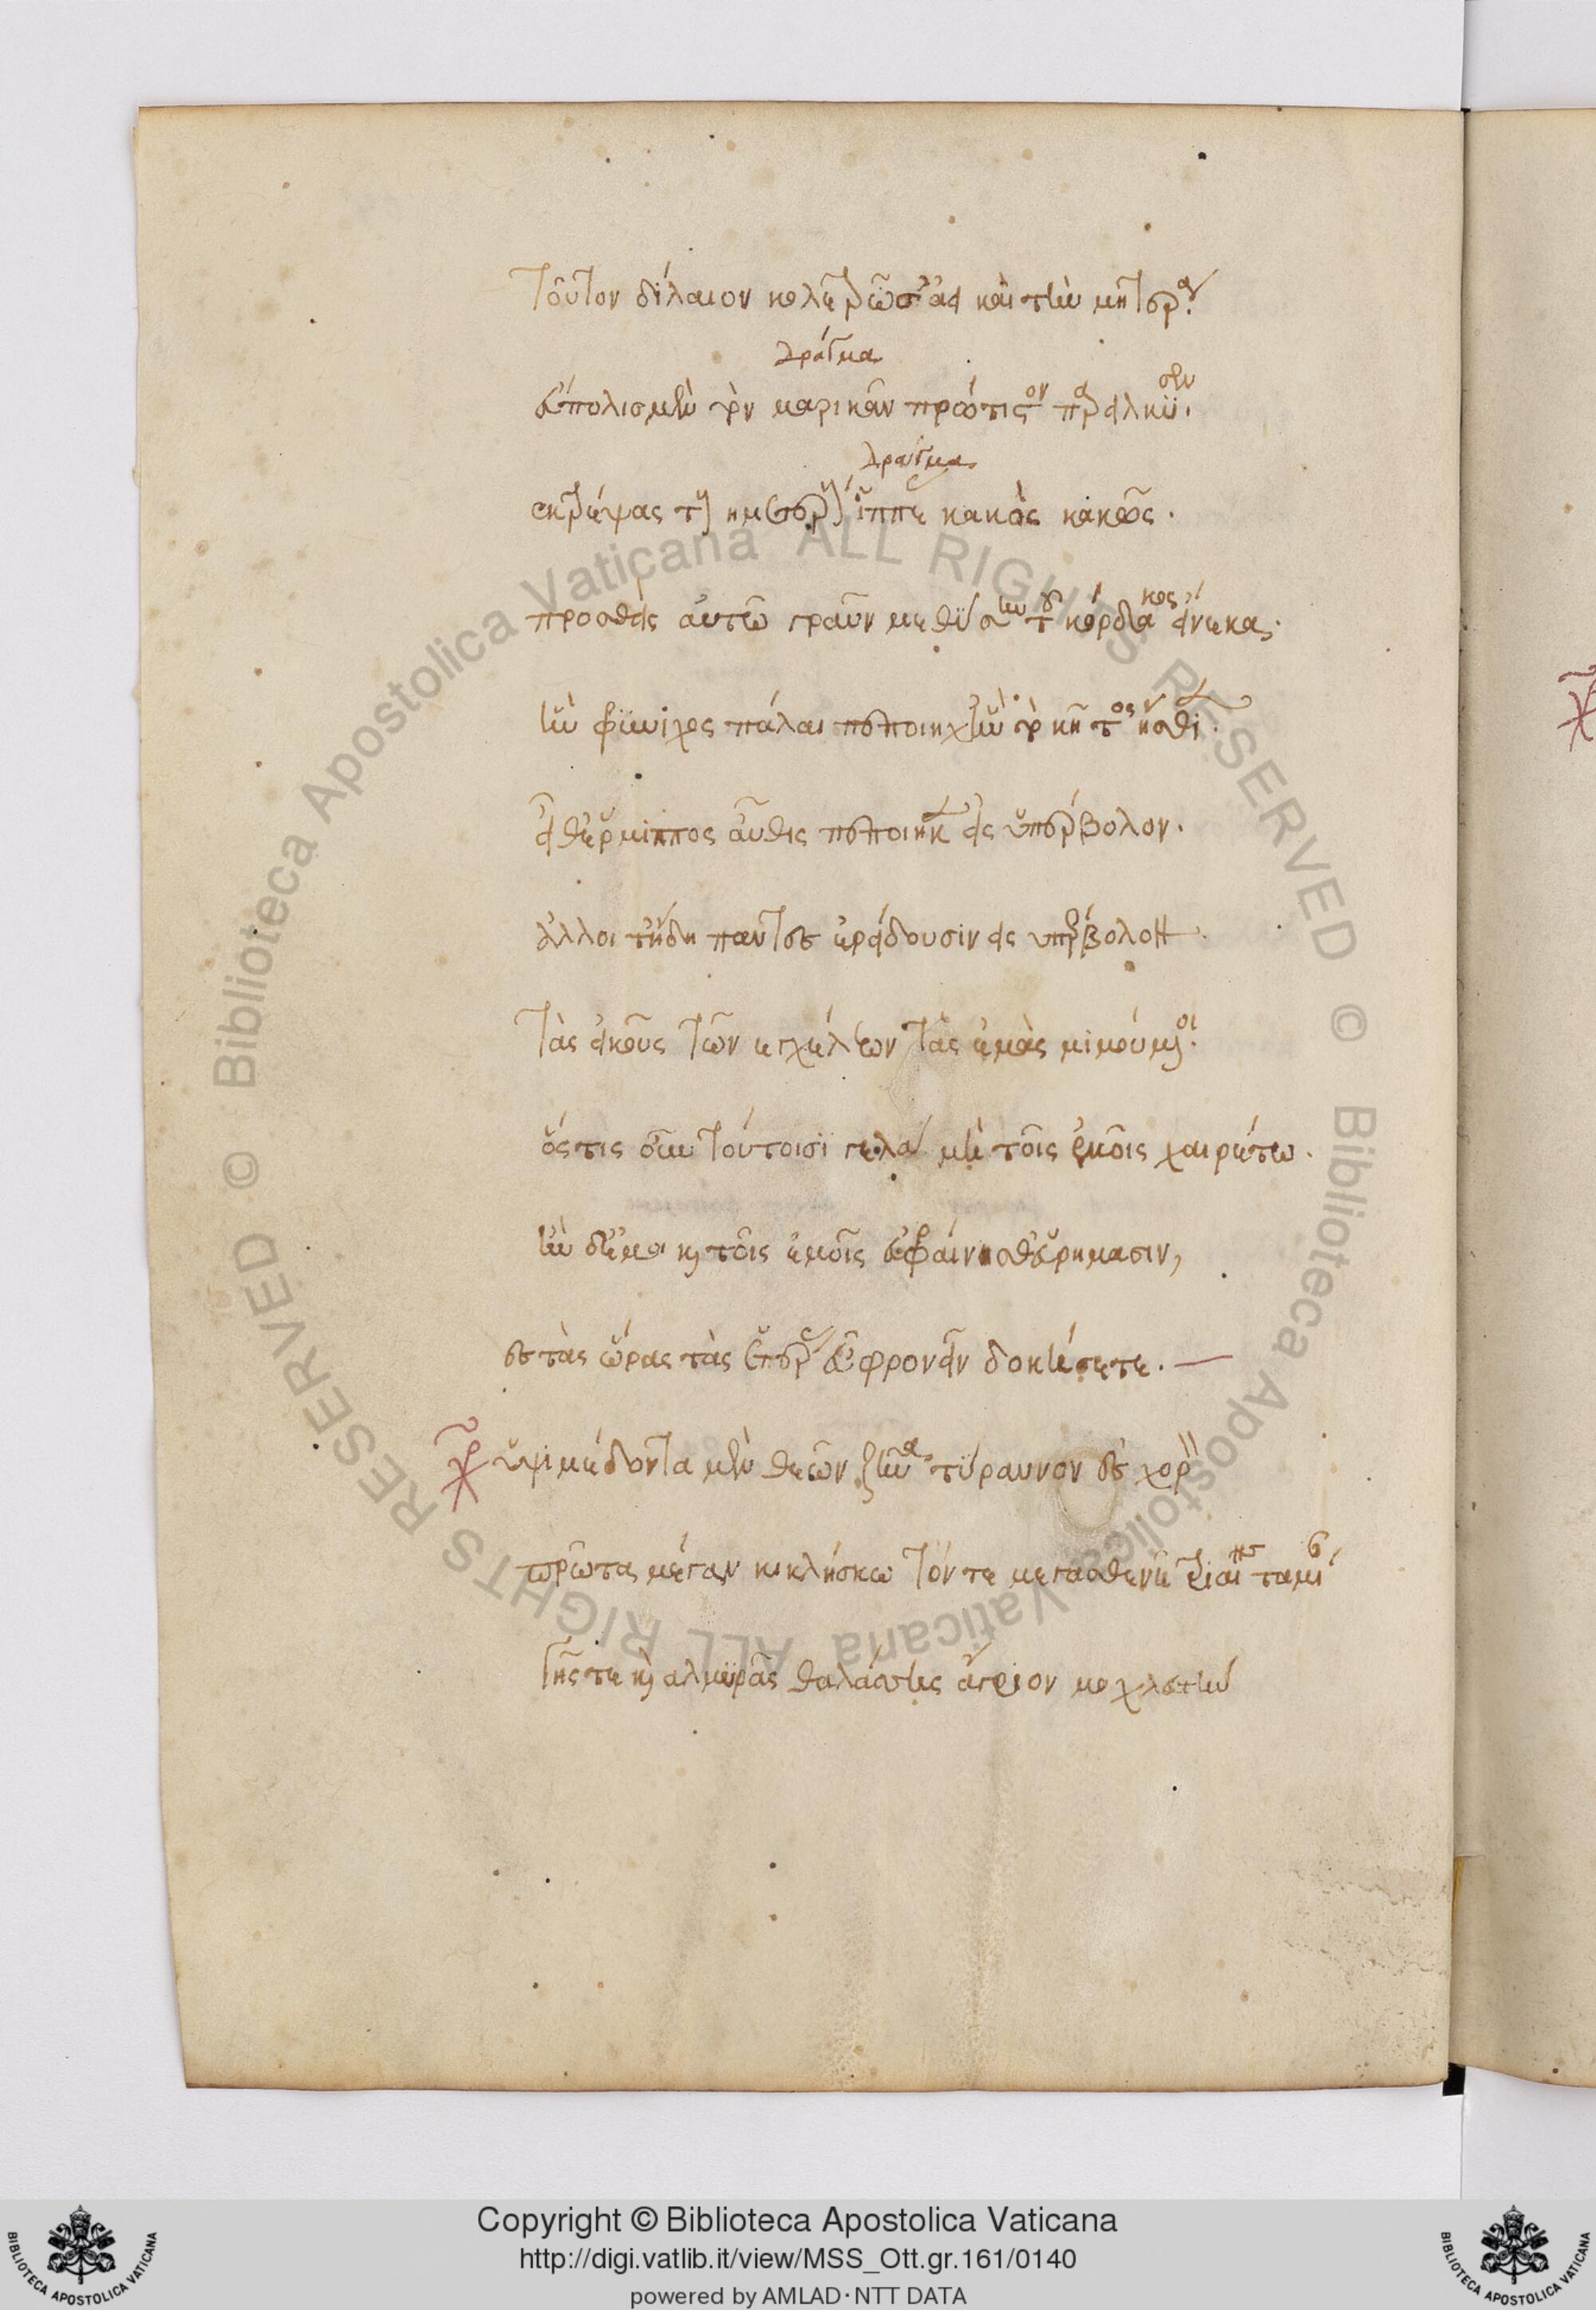 τοῦτον δείλαιον κολετρῶσ' ἀεὶ καὶ τὴν μητέρα.
δράμα
εὔπολις μὲν τὸν μαρικᾶν πρώτιστον παρείλκυσεν.
δράμα
ἐκστρέψας τοὺς ἡμετέρους ἵππέ κακὸς κακῶς.
προσθεὶς αὐτῶ γραῦν μεθύσην τοῦ κόρδακος εἵνεκα,
ἣν φρύνιχος πάλαι πεποίηχ' ἣν τὸ κῆτος ἤσθιεν.
εἶθ' ἕρμιππος αὖθις πεποίηκεν εἰς ὑπέρβολον.
ἄλλοι τ' ἤδη πάντες ἐρείδουσιν εἰς ὑπέρβολον.
τὰς εἰκοῦς τῶν ἐγχέλεων τὰς ἐμὰς μιμούμενοι.
ὅςτις οὖν τούτοισι γελᾶ μὴ τοῖς ἐμοῖς χαιρέτω.
ἢν δ' ἐμοὶ καὶ τοῖς ἐμοῖς εὐφραίνησθ' εὑρήμασιν,
ἐς τὰς ὥρας τὰς ἑτέρας εὖ φρονεῖν δοκήσετε.
ὑψιμέδοντα μὲν θεῶν ζῆνα τύραννον ἐς χορὸν
πρῶτα μέγαν κικλήσκω τόν τε μεγασθενῆ τριαίνης ταμίαν
γῆς τε καὶ ἁλμυρᾶς θαλάσσης ἄγριον μοχλευτήν
Copyright © Biblioteca Apostolica Vaticana
http://digi.vatlib.it/view/MSS_Ott.gr.161/0140
powered by AMLAD·NTT DATA